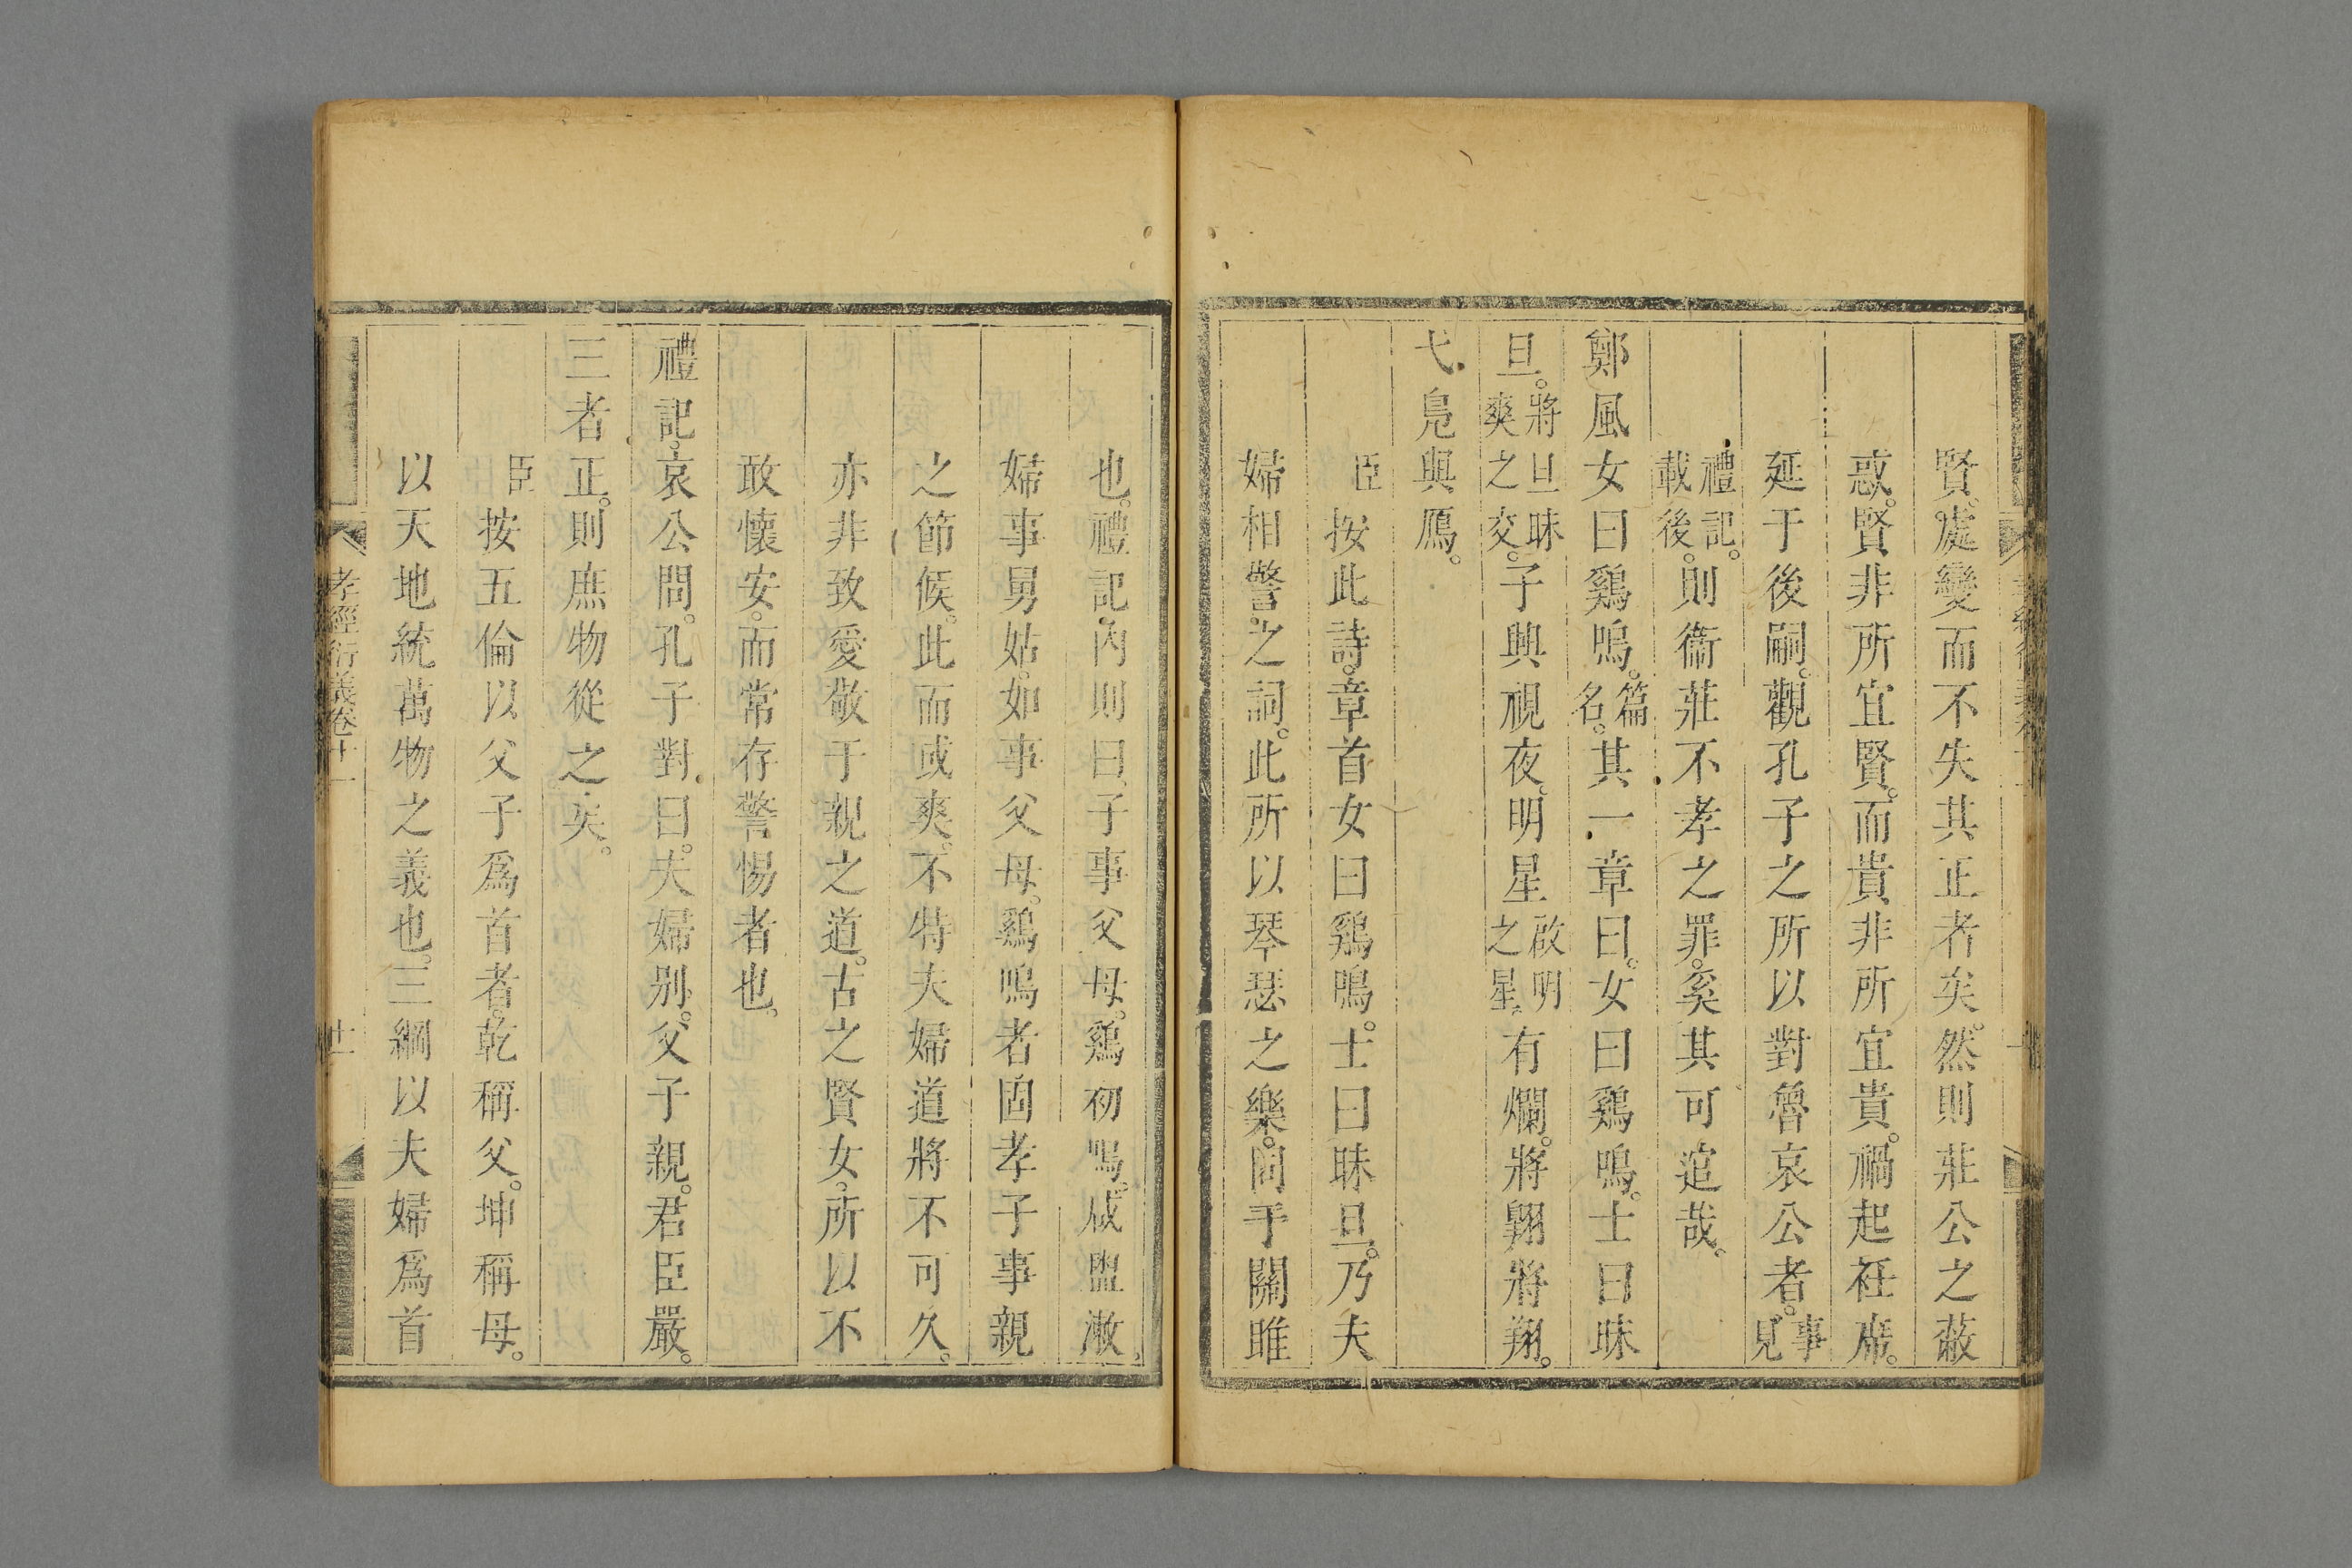 賢。處變而不失其正者矣。然則莊公之蔽
惑。賢非所宜賢。而貴非所宜貴。禍起衽席。
延于後嗣。觀孔子之所以對魯哀公者。事見
禮記。載後。則衞莊不孝之罪。奚其可逭哉。
鄭風女曰鷄鳴。篇名。其一章曰。女曰鷄鳴。士曰昧
旦。將旦昧爽之交。子興視夜。明星啟明之星。有爛。將翺將翔。
弋鳧與鴈。
臣按此詩。章首女曰鷄鳴。士曰昧旦。乃夫
婦相警之詞。此所以琴瑟之樂。同乎關雎
也。禮記內則曰。子事父母。鷄初鳴。咸盥漱。
婦事舅姑。如事父母。鷄鳴者固孝子事親
之節候。此而或爽。不特夫婦道將不可久。
亦非致愛敬于親之道。古之賢女。所以不
敢懷安。而常存警惕者也。
禮記。哀公問。孔子對曰。夫婦別。父子親。君臣嚴。
三者正。則庶物從之矣。
臣按五倫以父子爲首者。乾稱父。坤稱母。
以天地統萬物之義也。三綱以夫婦爲首
孝經衍義卷十一
十一